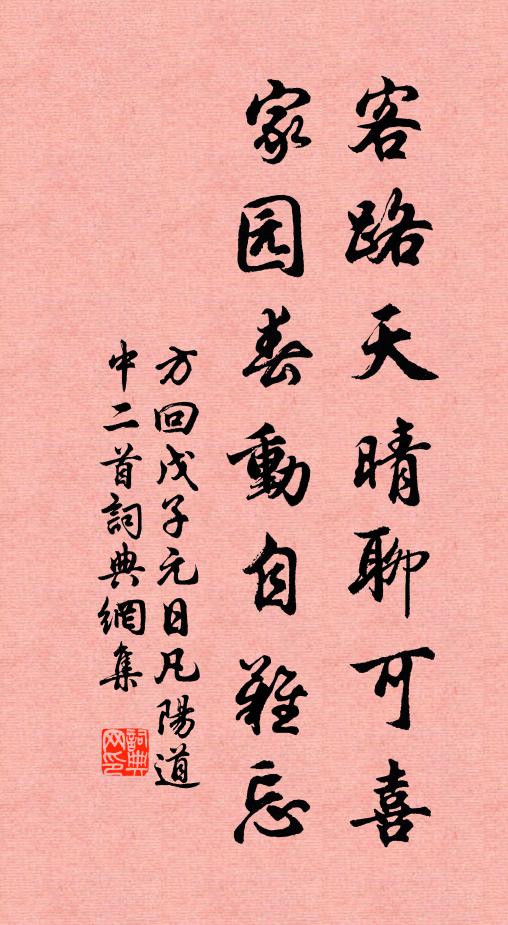 客路天晴聊可喜
家园春動自難忘
方回戊子元日凡陽道
中二首詞典網集
詞典網印